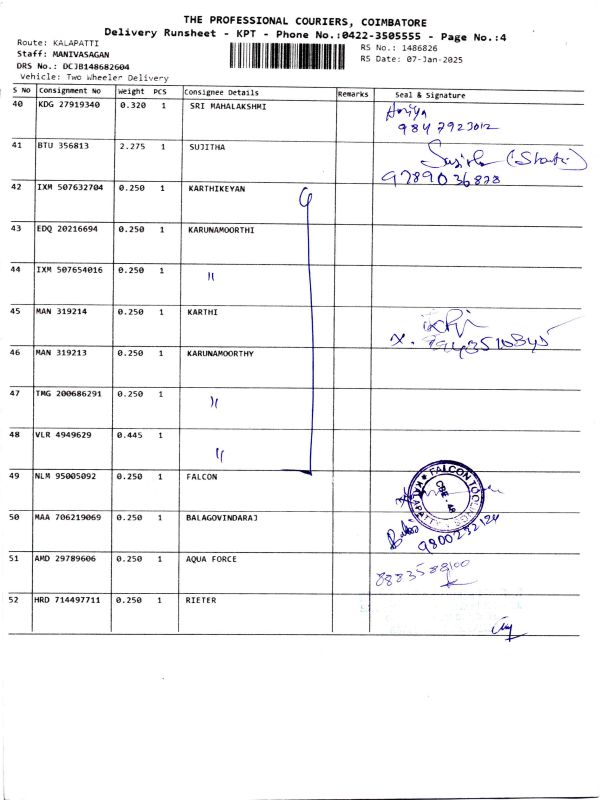 THE PROFESSIONAL COURIERS, COIMBATORE
Delivery Runsheet - KPT - Phone No.:0422-3505555 - Page No.:4
Route: KALAPATTI
Staff: MANIVASAGAN
DRS No.: DCJB148682604
Vehicle: Two Wheeler Delivery
RS No.: 1486826
RS Date: 07-Jan-2025
S No Consignment No Weight PCS Consignee Details Remarks Seal & Signature
40 KDG 27919340 0.320 1 SRI MAHALAKSHMI
9847923012
41 BTU 356813 2.275 1 SUJITHA
9789036878
42 IXM 507632704 0.250 1 KARTHIKEYAN
43 EDQ 20216694 0.250 1 KARUNAMOORTHI
44 IXM 507654016 0.250 1 "
45 MAN 319214 0.250 1 KARTHI
46 MAN 319213 0.250 1 KARUNAMOORTHY
47 TMG 200686291 0.250 1 "
48 VLR 4949629 0.445 1 "
49 NLM 95005092 0.250 1 FALCON
FALCON
KALAPATTI
CBE - 48
50 MAA 706219069 0.250 1 BALAGOVINDARAJ
51 AMD 29789606 0.250 1 AQUA FORCE
8883588100
52 HRD 714497711 0.250 1 RIETER